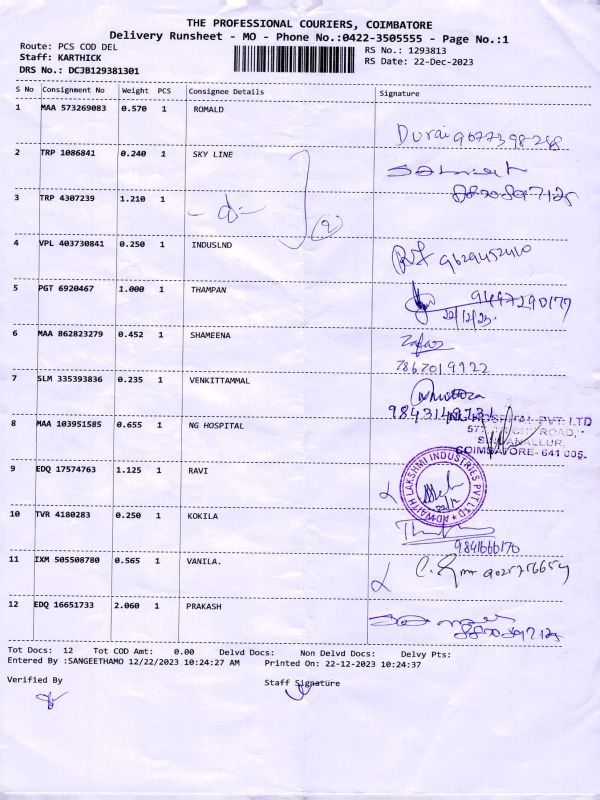 THE PROFESSIONAL COURIERS, COIMBATORE
Delivery Runsheet - MO - Phone No.:0422-3505555 - Page No.:1
Route: PCS COD DEL
RS No.: 1293813
Staff: KARTHICK
RS Date: 22-Dec-2023
DRS No.: DCJB129381301
S No Consignment No Weight PCS Consignee Details Signature
1 MAA 573269083 0.570 1 ROMALD
Durai 9677398288
2 TRP 1086841 0.240 1 SKY LINE
3 TRP 4307239 1.210 1
4 VPL 403730841 0.250 1 INDUSLND
9629452410
5 PGT 6920467 1.000 1 THAMPAN
9497290177
22/12/23
6 MAA 862823279 0.452 1 SHAMEENA
7 SLM 335393836 0.235 1 VENKITTAMMAL
8 MAA 103951585 0.655 1 NG HOSPITAL
HOSPITAL PVT. LTD
ROAD,
COIMBATORE- 641 005.
9 EDQ 17574763 1.125 1 RAVI
ADWAITH LAKSHMI INDUSTRIES PVT LTD
10 TVR 4180283 0.250 1 KOKILA
9841666170
11 IXM 505508780 0.565 1 VANILA.
12 EDQ 16651733 2.060 1 PRAKASH
Tot Docs: 12 Tot COD Amt: 0.00 Delvd Docs: Non Delvd Docs: Delvy Pts:
Entered By :SANGEETHAMO 12/22/2023 10:24:27 AM Printed On: 22-12-2023 10:24:37
Verified By
Staff Signature